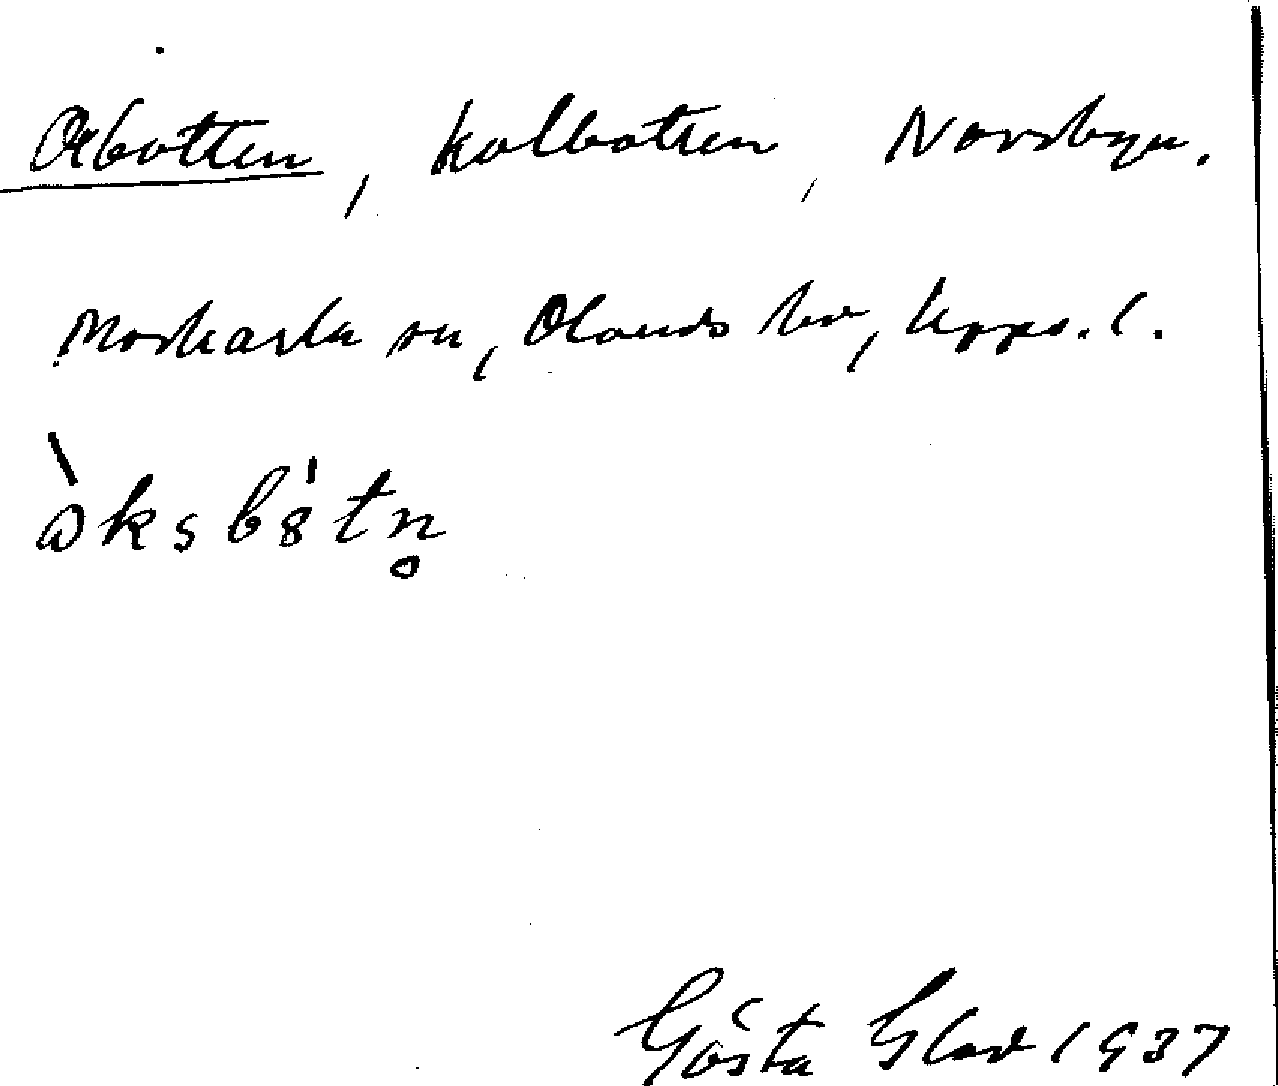 Oxbotten, kolbotten, Norrbyn.
Morkarla sn, Olands hd, Upps. l.
ɷ̀ksb8̍tn̥
Gösta 1937